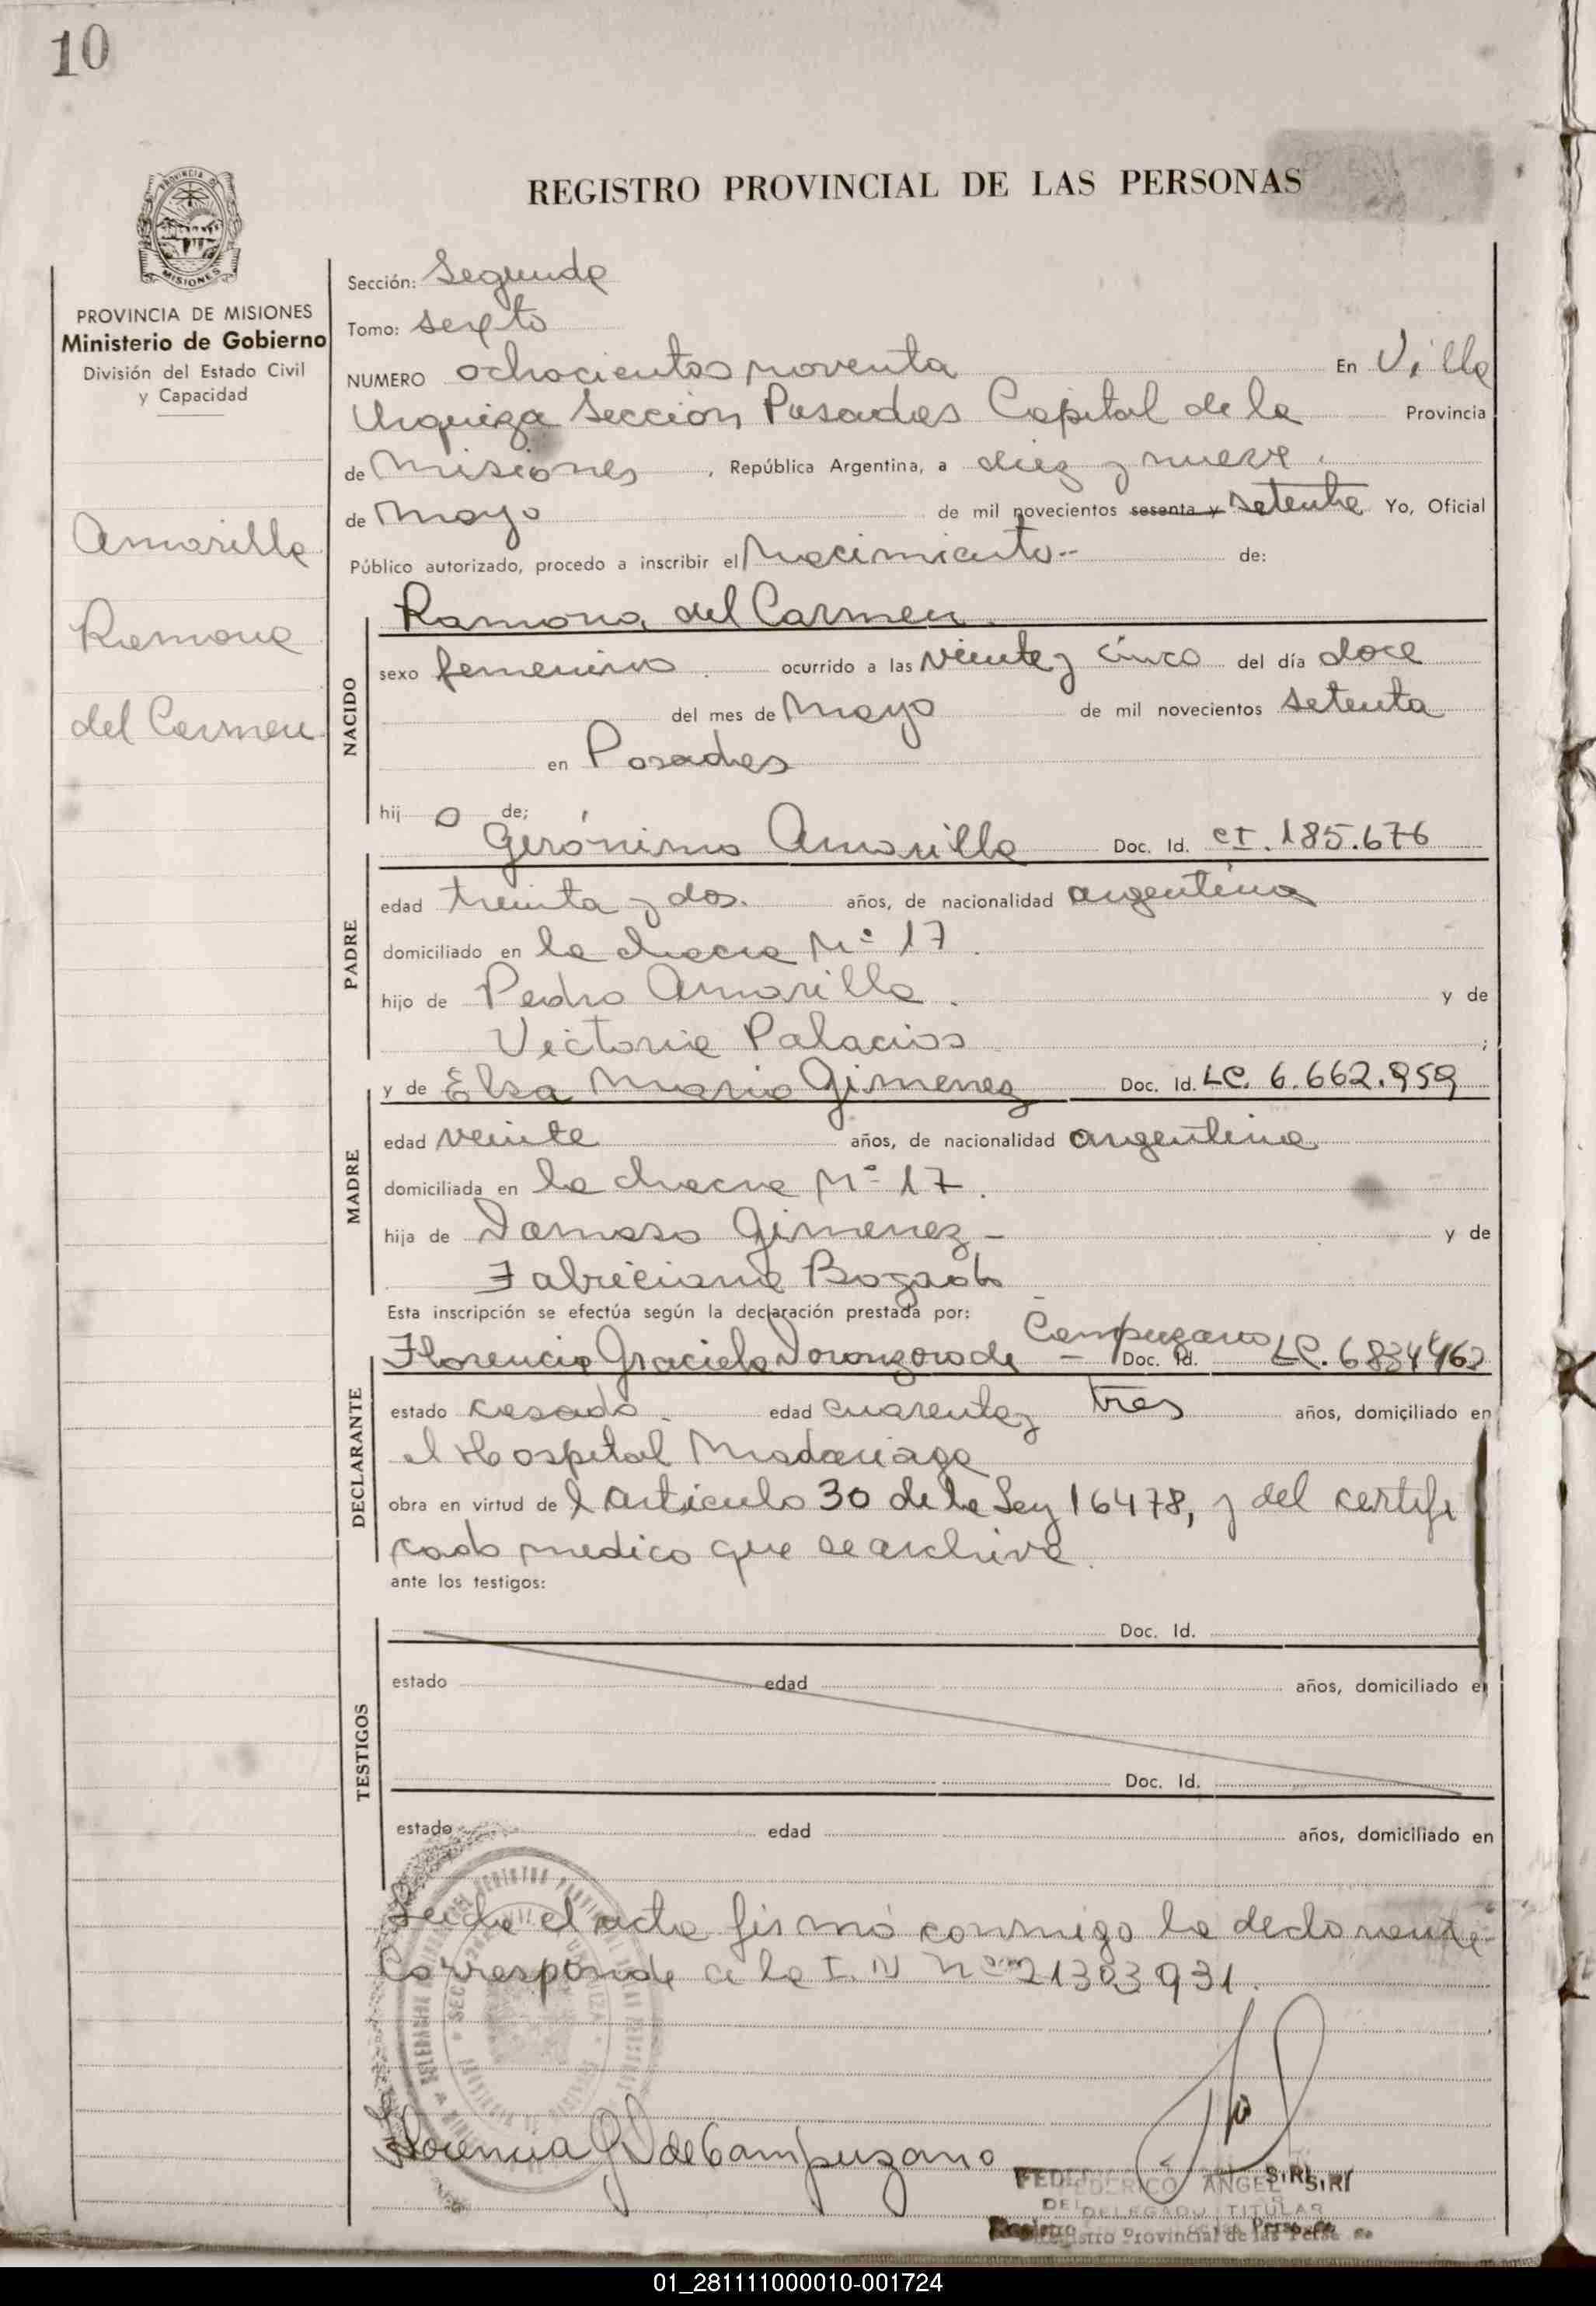 10
REGISTRO PROVINCIAL DE LAS PERSONAS
MISIONES
PROVINCIA DE MISIONES
Ministerio de Gobierno
División del Estado Civil
y Capacidad
Amarilla
Ramona
del Carmen
Sección: Segunda
Tomo: sexto
NUMERO ochocientos noventa En Villa
Urquiza Sección Posadas Capital de la Provincia
de Misiones, República Argentina, a diez y nueve
de Mayo de mil novecientos sesenta y setenta Yo, Oficial
Público autorizado, procedo a inscribir el Nacimiento-- de:
NACIDO
Ramona del Carmen
sexo femenino ocurrido a las veinte y cinco del día doce
del mes de Mayo de mil novecientos setenta
en Posadas
hij a de;
PADRE
Gerónimo Amarilla Doc. Id. CI. 185.676
edad treinta y dos. años, de nacionalidad argentina
domiciliado en la chacra Nº 17.
hijo de Pedro Amarilla. y de
Victoria Palacios ;
MADRE
y de Elsa Maria Gimenez Doc. Id. LC. 6.662.959
edad veinte años, de nacionalidad argentina
domiciliada en la chacra Nº 17.
hija de Damaso Gimenez - y de
Fabriciana Bogado
Esta inscripción se efectúa según la declaración prestada por:
DECLARANTE
Florencia Graciela de Campuzano Doc. Id. LC. 6834462
estado casada. edad cuarenta y tres años, domiciliado en
el Hospital Madariaga
obra en virtud del articulo 30 de la Ley 16478, y del certifi
cado medico que se archiva.
ante los testigos:
TESTIGOS
Doc. Id.
estado edad años, domiciliado en
Doc. Id.
estado edad años, domiciliado en
Leida el acta firmó conmigo la declarante
Corresponde a la I. N Nº 21303931.
Florencia G D de Campuzano
FEDERICO ANGEL SIRI
DELEGADO TITULAR
Registro Provincial de las Personas
01_281111000010-001724